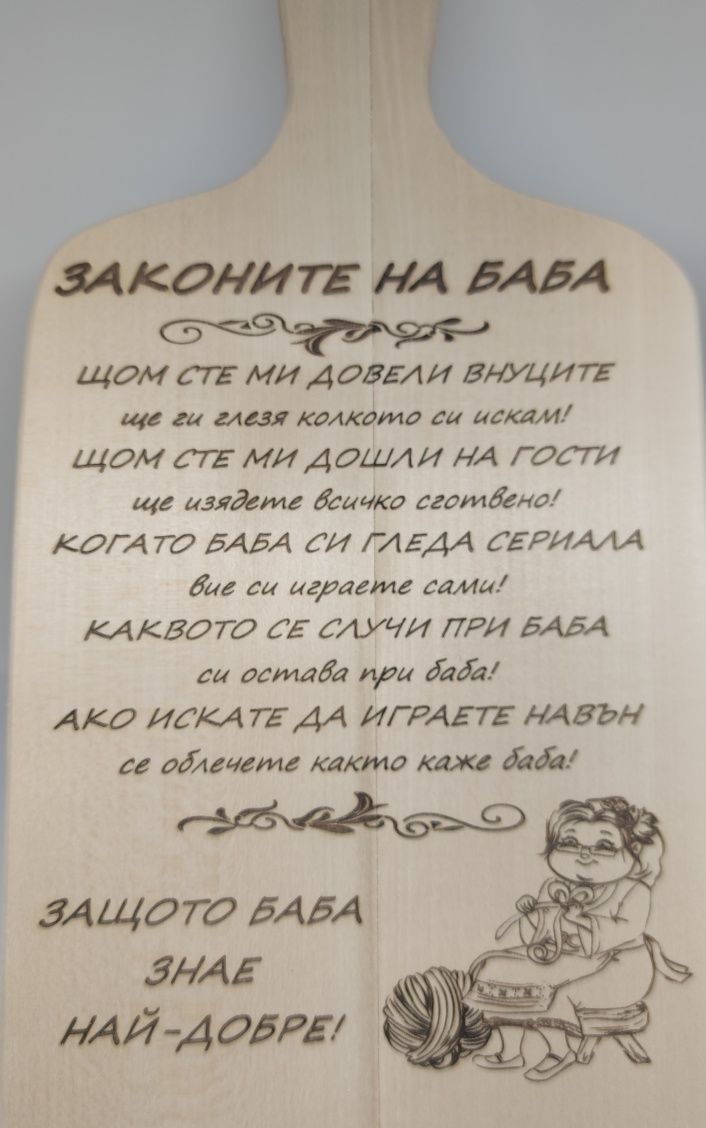 ЗАКОНИТЕ НА БАБА
ЩОМ СТЕ МИ ДОВЕЛИ ВНУЦИТЕ
ще ги глезя колкото си искам!
ЩОМ СТЕ МИ ДОШЛИ НА ГОСТИ
ще изядете всичко сготвено!
КОГАТО БАБА СИ ГЛЕДА СЕРИАЛА
вие си играете сами!
КАКВОТО СЕ СЛУЧИ ПРИ БАБА
си остава при баба!
АКО ИСКАТЕ ДА ИГРАЕТЕ НАВЪН
се облечете както каже баба!
ЗАЩОТО БАБА
ЗНАЕ
НАЙ-ДОБРЕ!